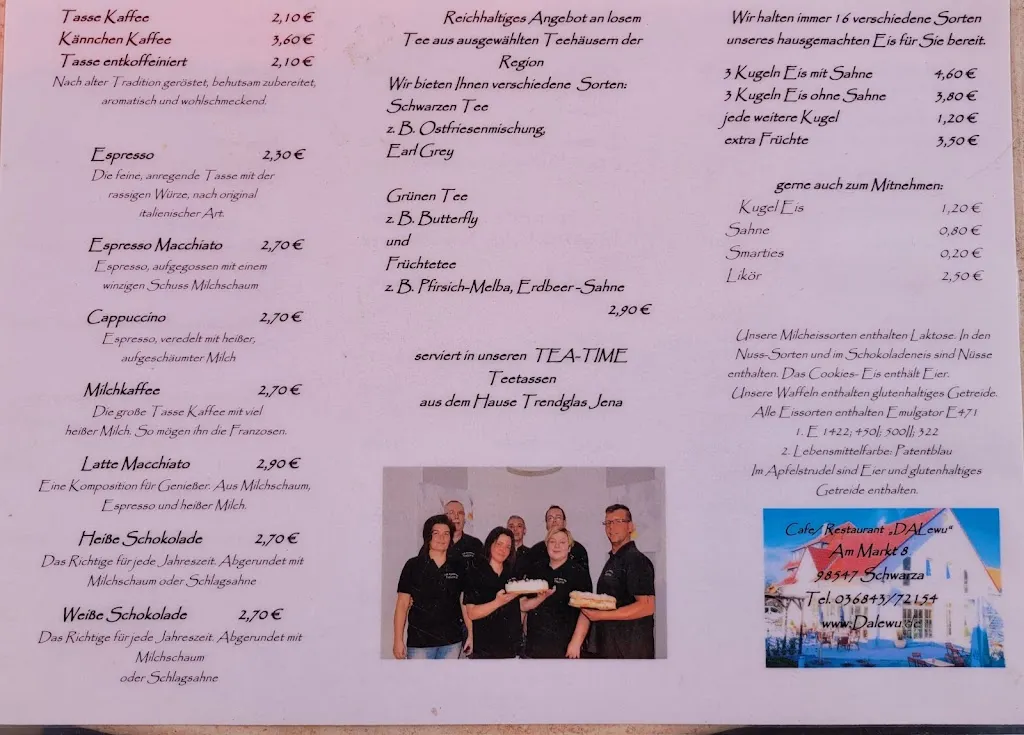 Tasse Kaffee 2,10 €
Kännchen Kaffee 3,60 €
Tasse entkoffeiniert 2,10 €
Nach alter Tradition geröstet, behutsam zubereitet,
aromatisch und wohlschmeckend.
Espresso 2,30 €
Die feine, anregende Tasse mit der
rassigen Würze, nach original
italienischer Art.
Espresso Macchiato 2,70 €
Espresso, aufgegossen mit einem
winzigen Schuss Milchschaum
Cappuccino 2,70 €
Espresso, veredelt mit heißer,
aufgeschäumter Milch
Milchkaffee 2,70 €
Die große Tasse Kaffee mit viel
heißer Milch. So mögen ihn die Franzosen.
Latte Macchiato 2,90 €
Eine Komposition für Genießer. Aus Milchschaum,
Espresso und heißer Milch.
Heiße Schokolade 2,70 €
Das Richtige für jede Jahreszeit. Abgerundet mit
Milchschaum oder Schlagsahne
Weiße Schokolade 2,70 €
Das Richtige für jede Jahreszeit. Abgerundet mit
Milchschaum
oder Schlagsahne
Reichhaltiges Angebot an losem
Tee aus ausgewählten Teehäusern der
Region
Wir bieten Ihnen verschiedene Sorten:
Schwarzen Tee
z. B. Ostfriesenmischung,
Earl Grey
Grünen Tee
z. B. Butterfly
und
Früchtetee
z. B. Pfirsich-Melba, Erdbeer-Sahne
2,90 €
serviert in unseren TEA-TIME
Teetassen
aus dem Hause Trendglas Jena
Wir halten immer 16 verschiedene Sorten
unseres hausgemachten Eis für Sie bereit.
3 Kugeln Eis mit Sahne 4,60 €
3 Kugeln Eis ohne Sahne 3,80 €
jede weitere Kugel 1,20 €
extra Früchte 3,50 €
gerne auch zum Mitnehmen:
Kugel Eis 1,20 €
Sahne 0,80 €
Smarties 0,20 €
Likör 2,50 €
Unsere Milcheissorten enthalten Laktose. In den
Nuss-Sorten und im Schokoladeneis sind Nüsse
enthalten. Das Cookies- Eis enthält Eier.
Unsere Waffeln enthalten glutenhaltiges Getreide.
Alle Eissorten enthalten Emulgator E471
1. E 1422; 450I; 500II; 322
2. Lebensmittelfarbe: Patentblau
Im Apfelstrudel sind Eier und glutenhaltiges
Getreide enthalten.
Cafe/Restaurant „DALewu“
Am Markt 8
98547 Schwarza
Tel. 036843/72154
www.Dalewu.de